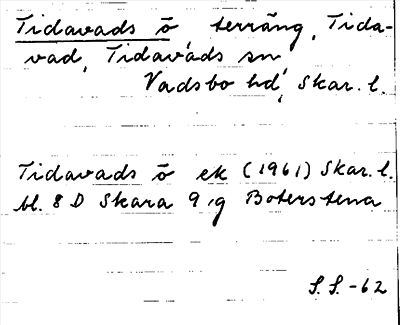 Tidavads ö terräng, Tida-
vad, Tidavads sn
Vadsbo hd, Skar. l.
Tidavads ö ek (1961) Skar. l.
bl. 8 D Skara 9 gBoterstena
S.S.-62